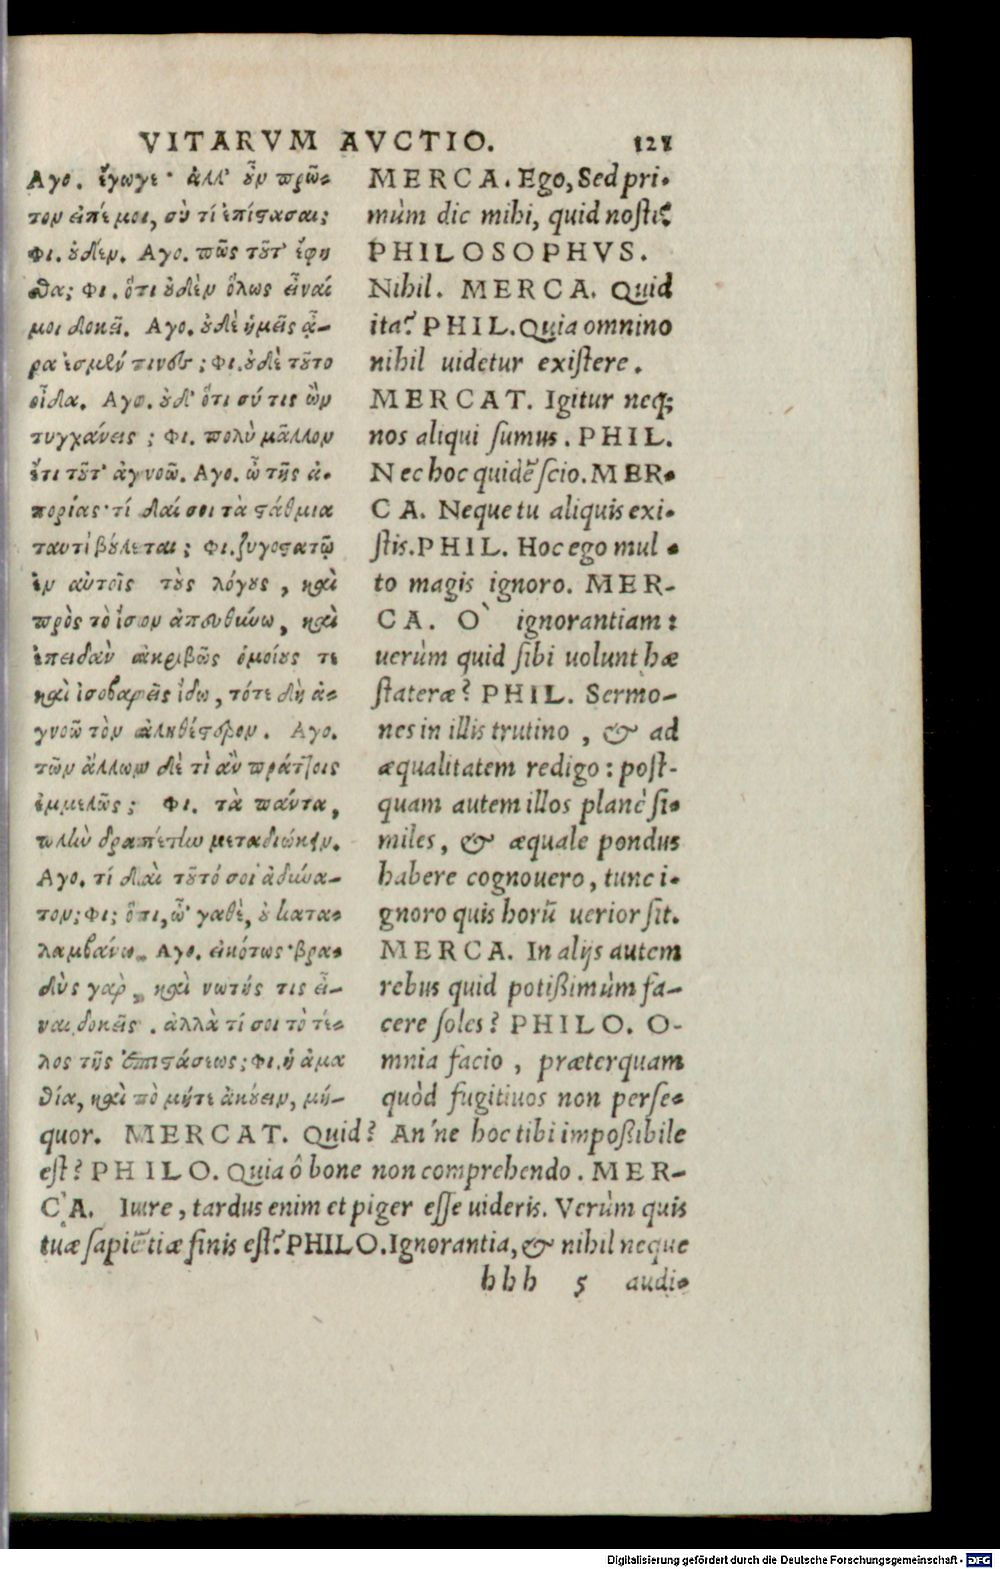 VITARVM AVCTIO. 121
Αγο. ἔγωγε· ἀλλ' οὖν πρῶ-
τον εἰπέ μοι, σὺ τί ἐπίστασαι;
Φι. οὐδέν. Αγο. πῶς τοῦτ' ἔφη
σθα; Φι. ὅτι οὐδὲν ὅλως εἶναί
μοι δοκεῖ. Αγο. οὐδὲ ἡμεῖς ἆ-
ρα ἐσμέν τινες; Φι. οὐδὲ τοῦτο
οἶδα. Αγο. οὐδ' ὅτι σύ τις ὢν
τυγχάνεις; Φι. πολὺ μᾶλλον
ἔτι τοῦτ' ἀγνοῶ. Αγο. ὦ τῆς ἀ-
πορίας· τί δαί σοι τὰ στάθμια
ταυτὶ βούλεται; Φι. ζυγοστατῶ
ἐν αὐτοῖς τοὺς λόγους, καὶ
πρὸς τὸ ἴσον ἀπευθύνω, καὶ
ἐπειδὰν ἀκριβῶς ὁμοίους τε
καὶ ἰσοβαρεῖς ἴδω, τότε δὴ ἀ-
γνοῶ τὸν ἀληθέστερον. Αγο.
τῶν ἄλλων δὲ τί ἂν πράττοις
ἐμμελῶς; Φι. τὰ πάντα,
πλὴν δραπέτην μεταδιώκειν.
Αγο. τί δαὶ τοῦτό σοι ἀδύνα-
τον; Φι; ὅτι, ὦ' γαθὲ, οὐ κατα-
λαμβάνω. Αγο. εἰκότως· βρα-
δὺς γὰρ, καὶ νωθής τις εἶ-
ναι δοκεῖς. ἀλλὰ τί σοι τὸ τέ-
λος τῆς ἐπιστάσεως; Φι. ἡ ἀμα
θία, καὶ τὸ μήτε ἀκούειν, μή-
MERCA. Ego, Sed pri-
mùm dic mihi, quid nosti?
PHILOSOPHVS.
Nihil. MERCA. Quid
ita? PHIL. Quia omnino
nihil uidetur existere.
MERCAT. Igitur neq;
nos aliqui sumus. PHIL.
Nec hoc quidē scio. MER-
CA. Neque tu aliquis exi-
stis. PHIL. Hoc ego mul-
to magis ignoro. MER-
CA. O` ignorantiam:
uerùm quid sibi uolunt hæ
stateræ? PHIL. Sermo-
nes in illis trutino, & ad
æqualitatem redigo: post-
quam autem illos planè si-
miles, & æquale pondus
habere cognouero, tunc i-
gnoro quis horū uerior sit.
MERCA. In alijs autem
rebus quid potißimùm fa-
cere soles? PHILO. O-
mnia facio, præterquam
quòd fugitiuos non perse-
quor. MERCAT. Quid? An'ne hoc tibi impoßibile
est? PHILO. Quia ô bone non comprehendo. MER-
CA. Iure, tardus enim et piger esse uideris. Verùm quis
tuæ sapiētiæ finis est? PHILO. Ignorantia, & nihil neque
hhh 5 audi-
Digitalisierung gefördert durch die Deutsche Forschungsgemeinschaft - DFG